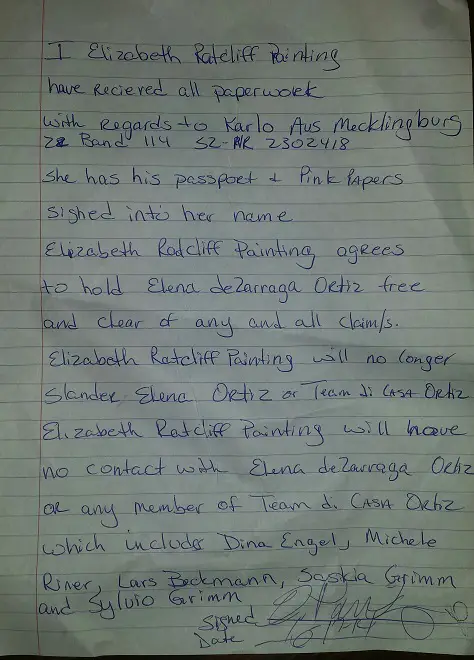 I Elizabeth Ratcliff Painting
have Recieved all paperwork
with Regards to Karlo Aus Mecklingburg
ZB Band 114 SZ-NR 2302418
She has his passport + Pink Papers
signed into her name
Elizabeth Ratcliff Painting agrees
to hold Elena deZarraga Ortiz free
and clear of any and all claim/s.
Elizabeth Ratcliff Painting will no longer
Slander Elena Ortiz or Team di CASA Ortiz
Elizabeth Ratcliff Painting will have
no contact with Elena deZarraga Ortiz
OR any member of Team di CASA Ortiz
which includes Dina Engel, Michele
Riner, Lars Beckmann, Saskia Grimm
and Sylvio Grimm
Signed
Date